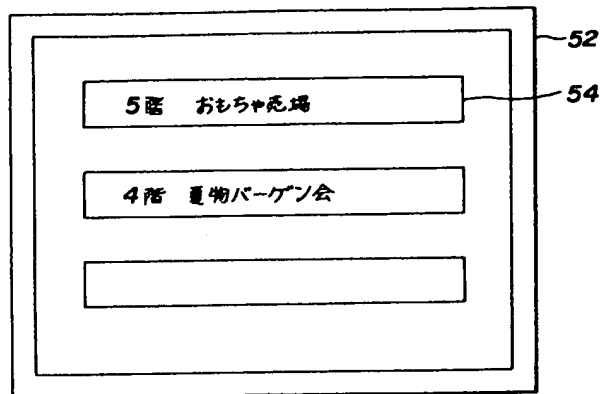 52
5階 おもちゃ売場
54
4階 夏物バーゲン会